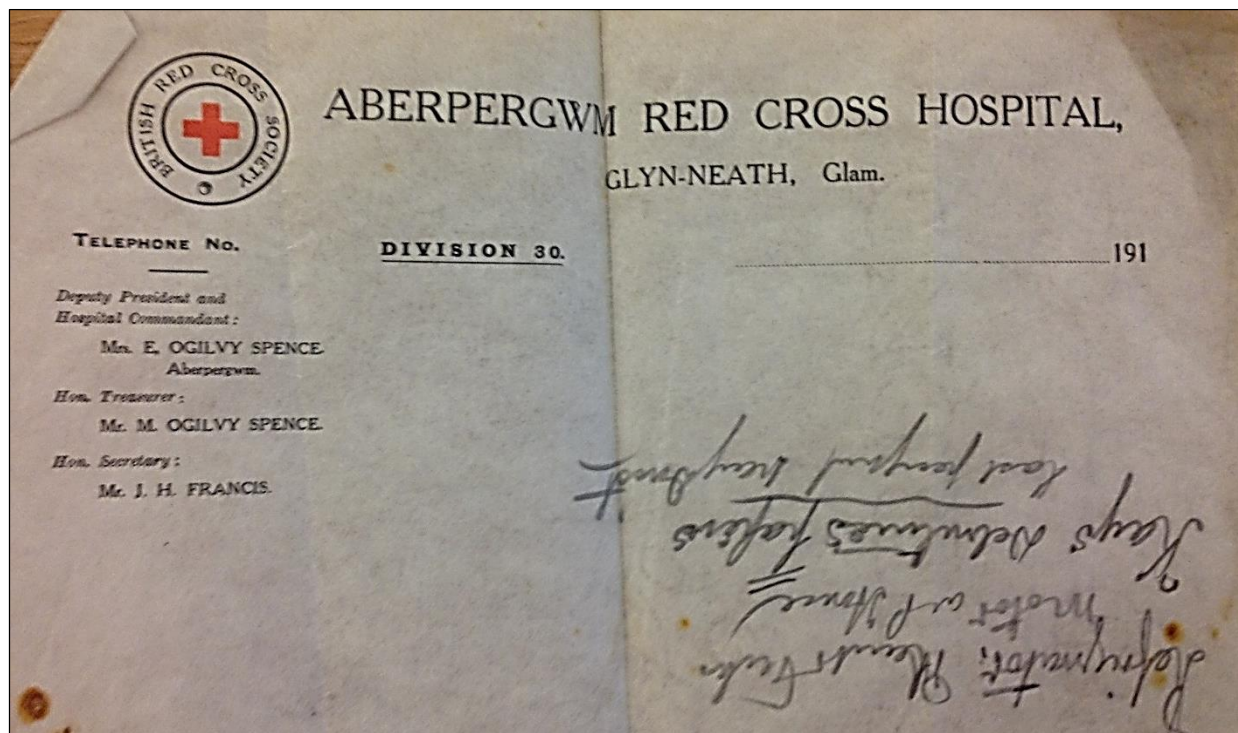 BRITISH RED CROSS SOCIETY
ABERPERGWM RED CROSS HOSPITAL,
GLYN-NEATH, Glam.
TELEPHONE No.
DIVISION 30.
191
Deputy President and
Hospital Commandant:
Mrs. E. OGILVY SPENCE.
Aberpergwm.
Hon. Treasurer:
Mr. M. OGILVY SPENCE.
Hon. Secretary:
Mr. J. H. FRANCIS.
Motor House
Kays papers
last